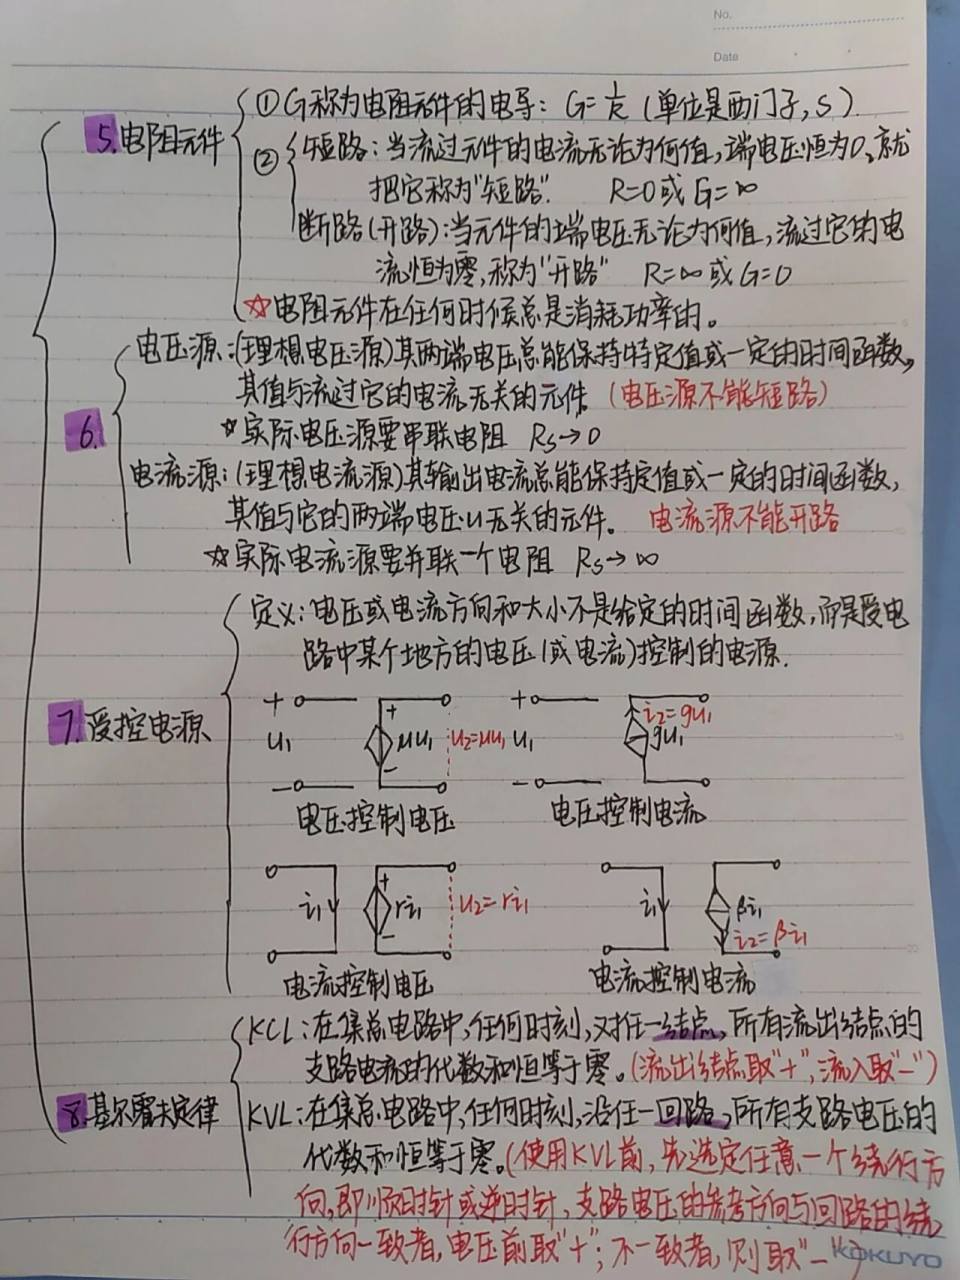 No.
Date
5.电阻元件
①G称为电阻元件的电导：G=1/R（单位是西门子，S）
②短路：当流过元件的电流无论为何值，端电压恒为0，就
把它称为"短路". R=0或G=∞
断路(开路)：当元件的端电压无论为何值，流过它的电
流恒为零，称为"开路" R=∞或G=0
☆电阻元件在任何时候总是消耗功率的。
6.
电压源：(理想电压源)其两端电压总能保持特定值或一定的时间函数，
其值与流过它的电流无关的元件。（电压源不能短路）
☆实际电压源要串联电阻 Rs→0
电流源：(理想电流源)其输出电流总能保持定值或一定的时间函数，
其值与它的两端电压u无关的元件。 电流源不能开路
☆实际电流源要并联一个电阻 Rs→∞
7.受控电源
定义：电压或电流方向和大小不是给定的时间函数，而是受电
路中某个地方的电压(或电流)控制的电源.
+ u₁ − + μu₁ − u₂=μu₁
电压控制电压
+ u₁ − i₂=gu₁ gu₁
电压控制电流
i₁ + ri₁ − u₂=ri₁
电流控制电压
i₁ βi₁ i₂=βi₁
电流控制电流
8.基尔霍夫定律
KCL：在集总电路中，任何时刻，对任一结点，所有流出结点的
支路电流的代数和恒等于零。（流出结点取"+"，流入取"−"）
KVL：在集总电路中，任何时刻，沿任一回路，所有支路电压的
代数和恒等于零。（使用KVL前，先选定任意一个绕行方
向，即顺时针或逆时针，支路电压的参考方向与回路的绕
行方向一致者，电压前取"+"；不一致者，则取"−"）
KOKUYO